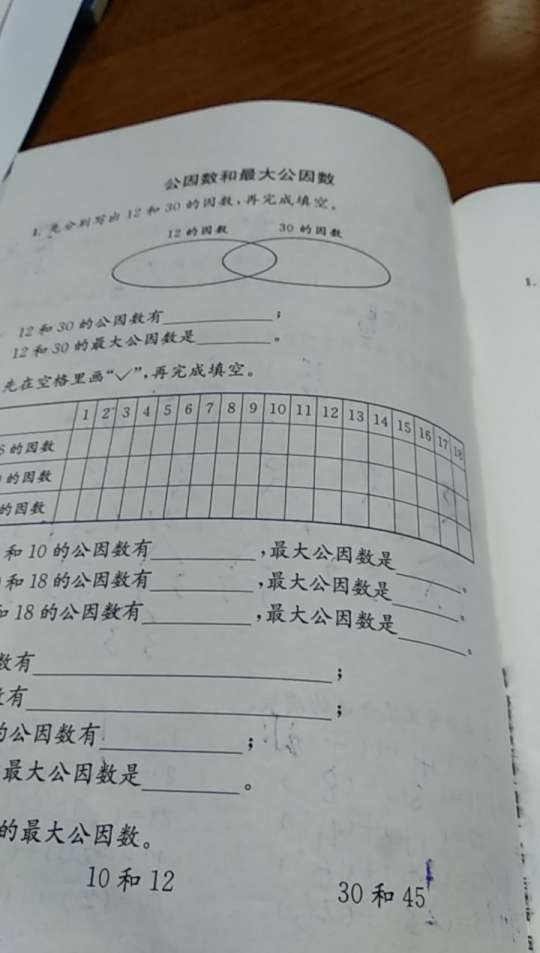 公因数和最大公因数
1. 先分别写出 12 和 30 的因数,再完成填空。
12 的因数 30 的因数
12 和 30 的公因数有 ;
12 和 30 的最大公因数是 。
先在空格里画“✓”,再完成填空。
1 2 3 4 5 6 7 8 9 10 11 12 13 14 15 16 17 18
的因数
的因数
的因数
和 10 的公因数有 ,最大公因数是 。
和 18 的公因数有 ,最大公因数是 。
和 18 的公因数有 ,最大公因数是 。
数有 ;
有 ;
的公因数有 ;
最大公因数是 。
的最大公因数。
10 和 12 30 和 45
1.